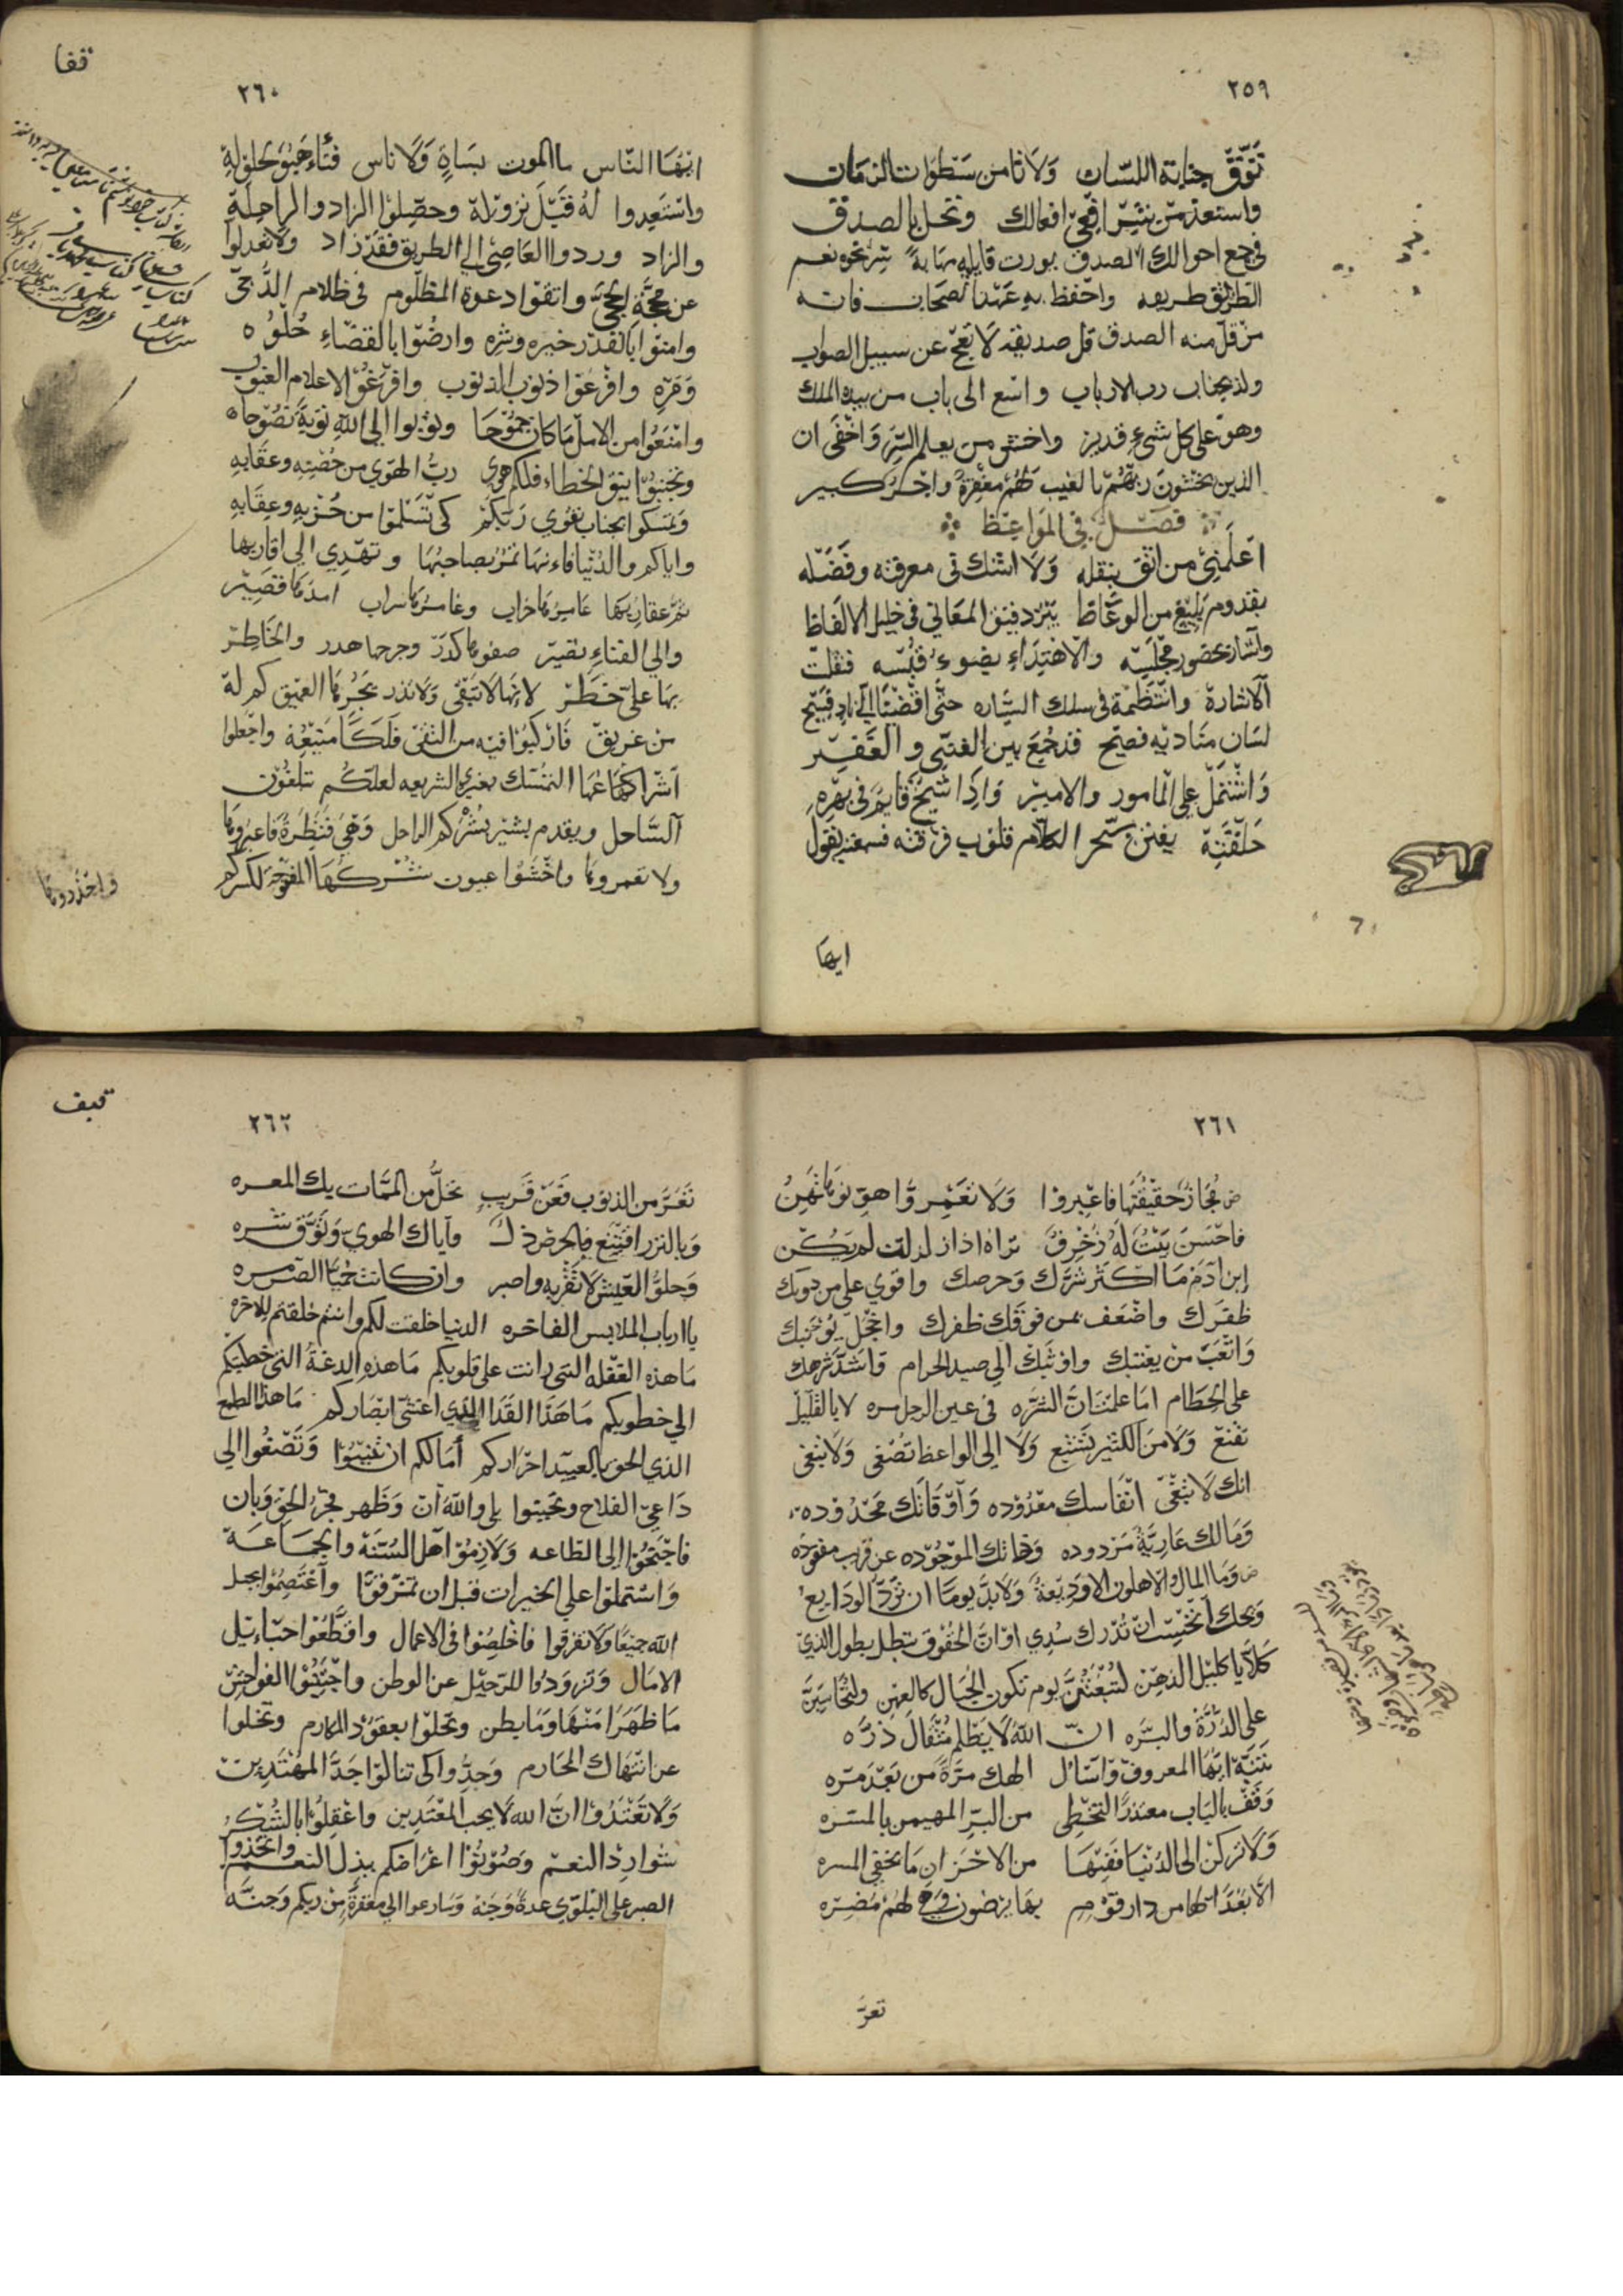 ٢٥٩
تَوَقَّ جناية اللسان ولا تأمن سطوات الزمان
واستعذ من شر اقبح افعالك وتحل بالصدق
في جمع احوالك الصدق يورث قايله مهابة
الطريق طريقه واحفظ به عهد الصحاب فانه
من قل منه الصدق قل صديقه لا تعج عن سبيل الصواب
ولذ بجناب رب الارباب واسع الى باب من بيده الملك
وهو على كل شيء قدير واخش من يعلم السر واخفى ان
الذين يخشون ربهم بالغيب لهم مغفرة واجر كبير
فصل في المواعظ
اعلمني من اثق بنقله ولا اشك في معرفته وفضله
بقدوم بليغ من الوعاظ يبرز دقيق المعاني في جليل الالفاظ
واشار بحضور مجلسه والاهتداء بضوء قبسه فقلت
الاشارة وانتظمت في سلك السياره حتى افضينا الى ناد فسيح
لسان مناديه فصيح قد جمع بين الغني والفقير
واشتمل على المامور والامير واذا شيخ قايم في بهره
حلقته يفتن بسحر الكلام قلوب فرقته فسمعته يقول
ايها
قفا
٢٦٠
ايها الناس ما الموت بساه ولا ناس فتاهبوا لحلوله
واستعدوا له قبل نزوله وحصلوا الزاد والراحلة
والزاد وردوا العاصي الى الطريق فقد زاد ولا تعدلوا
عن محجة الحجى واتقوا دعوة المظلوم في ظلام الدجى
وامنوا بالقدر خيره وشره وارضوا بالقضاء حلوه
ومره وافرغوا ذنوب الذنوب وافزعوا لاعلام الغيوب
وامنعوا من الامل ما كان جموحا وتوبوا الى الله توبة نصوحا
وتجنبوا الخطاء فلكم هوى رب الهوى من
وتمسكوا بجناب تقوى ربكم كي تسلموا من حزبه وعقابه
واياكم والدنيا فانها تمر بصاحبها وتهدي الى اقاربها
سم عقاربها عامرها خراب وغامرها سراب امدها قصير
والى الفناء تصير صفوها كدر وجرحها هدر والخاطر
بها على خطر لانها لا تبقي ولا تذر بحرها العميق كم له
من غريق فاركبوا فيه من التقى فلكا منيعة واجعلوا
شراعها التمسك بعرى الشريعه لعلكم تبلغون
الساحل ويقدم بشير بشركم الراحل وهي قنطرة فاعبروها
ولا تعمروها واخشوا عيون شركها المفوحة لكسركم
واحذروها
٢٦١
مجاز حقيقتها فاعبروا ولا تعمروا هونوها تهن
فاحسن بيت له زخرف تراه اذا زلزلت لم يكن
ابن ادم ما اكثر شرك وحرصك واقوى على من دونك
ظفرك واضعف عمن فوقك ظفرك واعجل
واتعب من يغنيك واوثبك الى صيد الحرام واشد شرهك
على الحطام اما علمت ان الشره في عين الرجل مره لا بالقليل
تقنع ولا من الكثير تشبع ولا الى الواعظ تصغى ولا تبغى
انك لا تبقى انفاسك معدوده واوقاتك محدوده
ومالك عارية مردوده وذاتك الموجوده عن قريب مفقوده
وما المال والاهلون الا وديعة ولا بد يوما ان ترد الودايع
ويحك اتحسب ان تترك سدى او ان الحقوق تبطل بطول المدى
كلا يا كليل الذهن لتبعثن يوم تكون الجبال كالعهن ولتحاسبن
على الذرة والبره ان الله لا يظلم مثقال ذره
تنبه ايها المعروف واسال الهك مرة من بعد مره
وقف بالباب معتذرا لتحظى من البر المهيمن بالمسره
ولا تركن الى الدنيا ففيها من الاحزان ما يخفي المسره
الا بعدا لها من دار قوم بها يرضون وهي لهم مضره
تعر
قيف
٢٦٢
تعر من الذنوب فعن قريب تحل من الممات بك المعره
وبالنزر اقتنع فالحرص ذل واياك الهوى وتوق شره
وحلو العيش لا تقربه واصبر وان كانت حميا الصبر مره
يا ارباب الملابس الفاخره الدنيا خلقت لكم وانتم خلقتم للاخره
ما هذه الغفله التي رانت على قلوبكم ما هذه الدعة التي خطتكم
الى خطوبكم ما هذا القذا الذي اعشى ابصاركم ما هذا الطمع
الذي الحق بالعبيد احراركم اما لكم ان تنيبوا وتصغوا الى
داعي الفلاح وتجيبوا بلى والله ان وظهر فجر الحق وبان
فاجنحوا الى الطاعه ولازموا اهل السنة والجماعة
واشتملوا على الخيرات قبل ان تمزقوا واعتصموا بحبل
الله جميعا ولا تفرقوا فاخلصوا في الاعمال واقطعوا حبائل
الامال وتزودوا للرحيل عن الوطن واجتنبوا الفواحش
ما ظهر منها وما بطن وتحلوا بعقود المكارم وتخلوا
عن انتهاك المحارم وجدوا كي تنالوا جد المهتدين
ولا تعتدوا ان الله لا يحب المعتدين واعقلوا بالشكر
شوارد النعم وصونوا اعراضكم ببذل النعم واتخذوا
الصبر على البلوى عدة وجنة وسارعوا الى مغفرة من ربكم وجنة